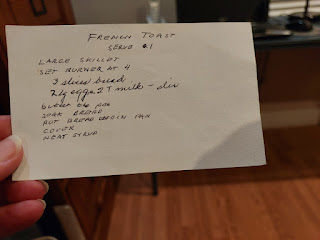 FRENCH TOAST
SERVE 1
LARGE SKILLET
SET BURNER AT 4
3 slices bread
2 lg eggs 2 T milk -
SOAK BREAD
PUT BREAD IN PAN
COVER
HEAT SYRUP